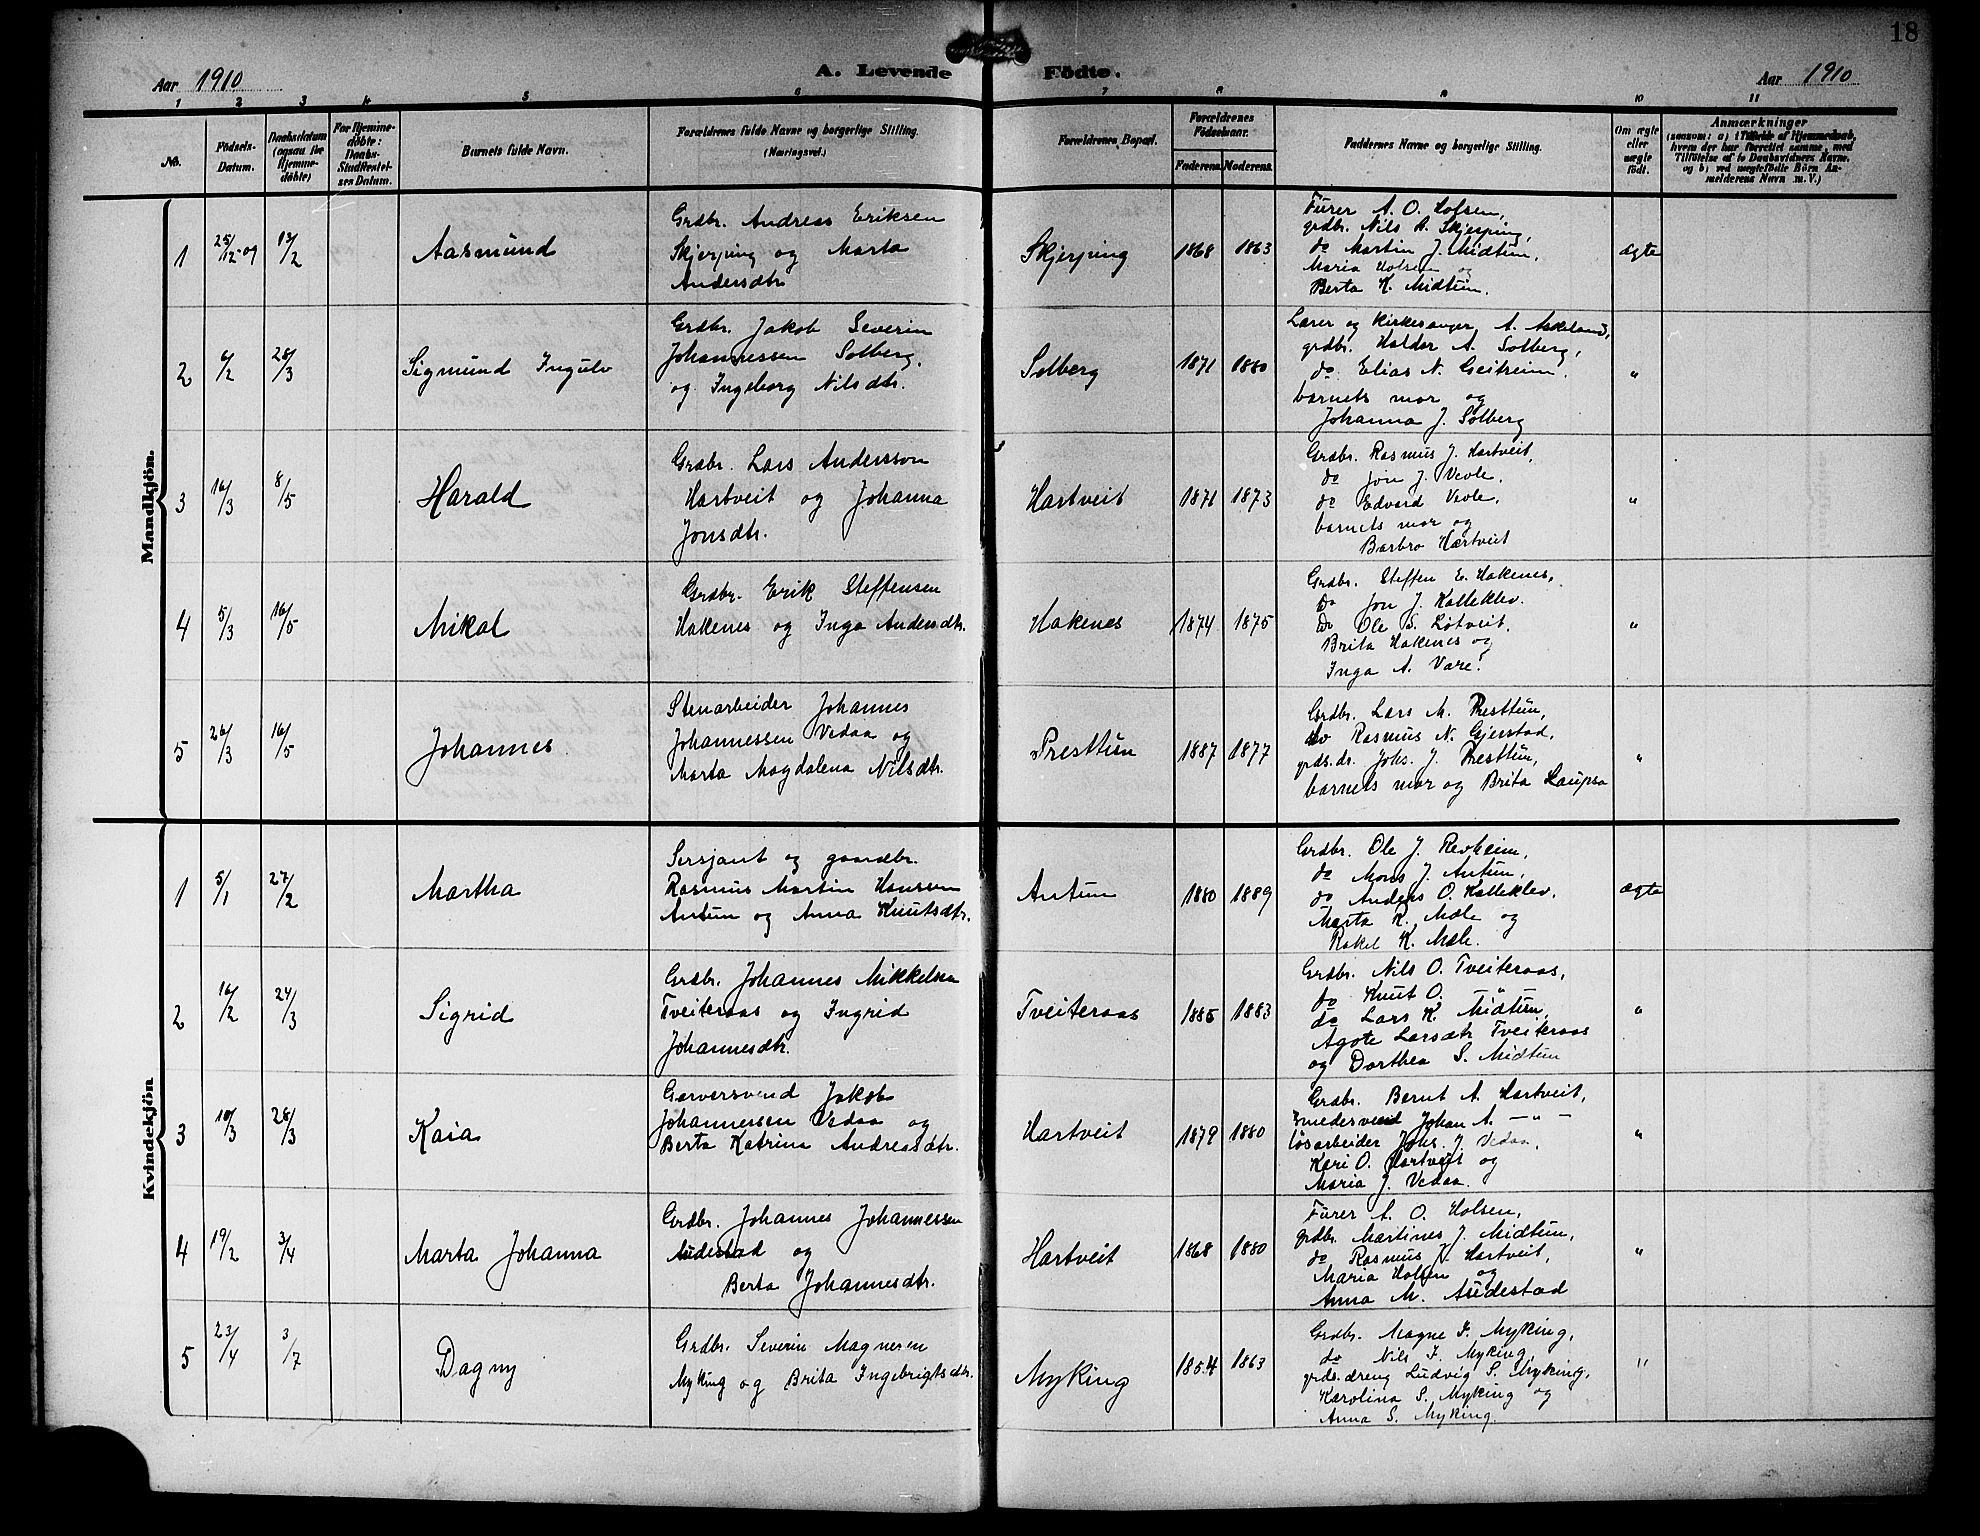 18
Aar 1910
A. Levende Födte.
Aar 1910
1 2 3 4 5 6 7 8 9 10 11
No.
Födsels-
Datum.
Daabsdatum
(ogsaa for
Hjemme-
döbte)
For Hjemme-
döbte:
Daabs-
Stadfæstel-
ses Datum.
Barnets fulde Navn.
Forældrenes fulde Navne og borgerlige Stilling.
(Næringsvei.)
Forældrenes Bopæl.
Forældrenes
Födselsaar.
Faderens.
Moderens.
Faddernes Navne og borgerlige Stilling.
Om ægte
eller
uægte
födt.
Anmærkninger
(saasom: a) i Tilfælde af Hjemmedaab,
hvem der har forrettet samme, med
Tilföielse af to Daabsvidners Navne,
og b) ved uægtefödte Börn An-
melderens Navn m. V.)
Mandkjön.
1
25/12-09
13/2
Aasmund
Grdbr. Andreas Eriksen
Skjerping og Marta
Andersdtr
Skjerping
1868
1863
Furer A. O. Holsen,
grdbr. Nils A. Skjerping,
do Martin J. Midtun,
Maria Holsen og
Berta K. Midtun.
ægte
2
6/2
28/3
Sigmund Ingulv
Grdbr. Jakob Severin
Johannessen Solberg,
og Ingeborg Nilsdtr.
Solberg
1871
1880
Lærer og kirkesanger A. Askeland,
grdbr. Haldor A. Solberg,
do. Elias N. Geitreim.
barnets mor og
Johanna J. Solberg
"
3
16/3
8/5
Harald
Grdbr. Lars Andersson
Hartveit og Johanna
Jonsdtr.
Hartveit
1871
1873
Grdbr. Rasmus J. Hartveit,
do Jon J. Vevle,
do Edvard Vevle,
barnets mor og
Barbro Hartveit
"
4
5/3
16/5
Mikal
Grdbr. Erik Steffensen
Hakenes og Inga Andersdtr.
Hakenes
1874
1875
Grdbr. Steffen E. Hakenes,
Do Jon J. Kalleklev.
Do Ole S. Lötveit,
Brita Hakenes og
Inga A. Vare.
"
5
26/3
16/5
Johannes
Stenarbeider Johannes
Johannessen Vedaa og
Marta Magdalena Nilsdtr.
Presttun
1887
1877
Grdbr. Lars M. Presttun,
do Rasmus N. Gjerstad,
grds.dr. Johs. J. Presttun,
barnets mor og Brita Laupsa
"
Kvindekjön
1
5/1
27/2
Martha
Sersjant og gaardbr.
Rasmus Martin Hanssen
Antun og Anna Knutsdtr.
Antun
1880
1889
Grdbr. Ole J. Revheim,
do Mons J. Antun,
do Anders O. Kalleklev,
Marta K. Mæle og
Rakel K. Mæle.
ægte
2
16/2
24/3
Sigrid
Grdbr. Johannes Mikkelsen
Tveiteraas og Ingrid
Johannesdtr.
Tveiteraas
1885
1883
Grdbr. Nils O. Tveiteraas,
do Knut O. — " —
do Lars K. Midtun,
Agote Larsdtr Tveiteraas
og Dorthea S. Midtun
"
3
10/3
28/3
Kaia
Garversvend Jakob
Johannessen Vedaa og
Berta Katrina Andreasdtr.
Hartveit
1879
1880
Grdbr. Bernt A. Hartveit,
Smedersvend Johan A. — " —
lösarbeider Johs. J Vedaa,
Kari O. Hartveit og
Maria J. Vedaa.
"
4
19/2
3/4
Marta Johanna
Grdbr. Johannes Johannessen
Audestad og
Berta Johannesdtr.
Hartveit
1868
1880
Furer A. O. Holsen,
grdbr. Martines J. Midtun,
do Rasmus J. Hartveit,
Maria Holsen og
Anna M. Audestad
"
5
23/4
3/7
Dagny
Grdbr. Severin Magnesen
Myking og Brita Ingebrigtsdtr.
Myking
1854
1863
Grdbr. Magne I. Myking,
do Nils I. Myking,
grds.dreng Ludvig S. Myking,
Karolina S. Myking og
Anna S. Myking.
"